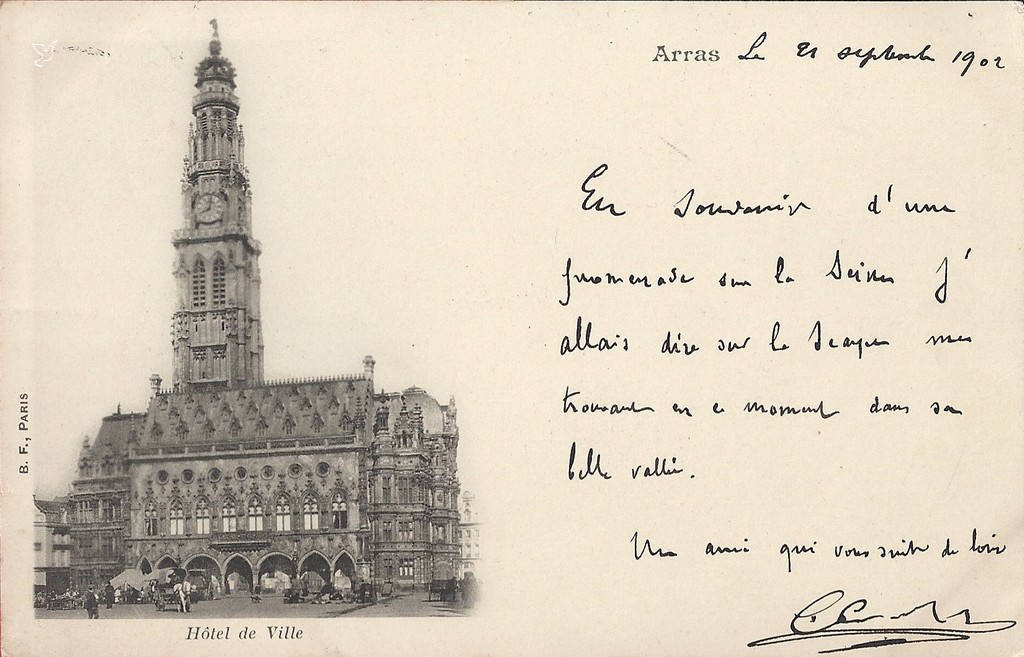 Arras Le 21 septembre 1902
En souvenir d'une
promenade sur la Seine j'
allais dire sur la Scarpe me
trouvant en ce moment dans sa
belle vallée.
Un ami qui vous suit de loin
B. F., PARIS
Hôtel de Ville